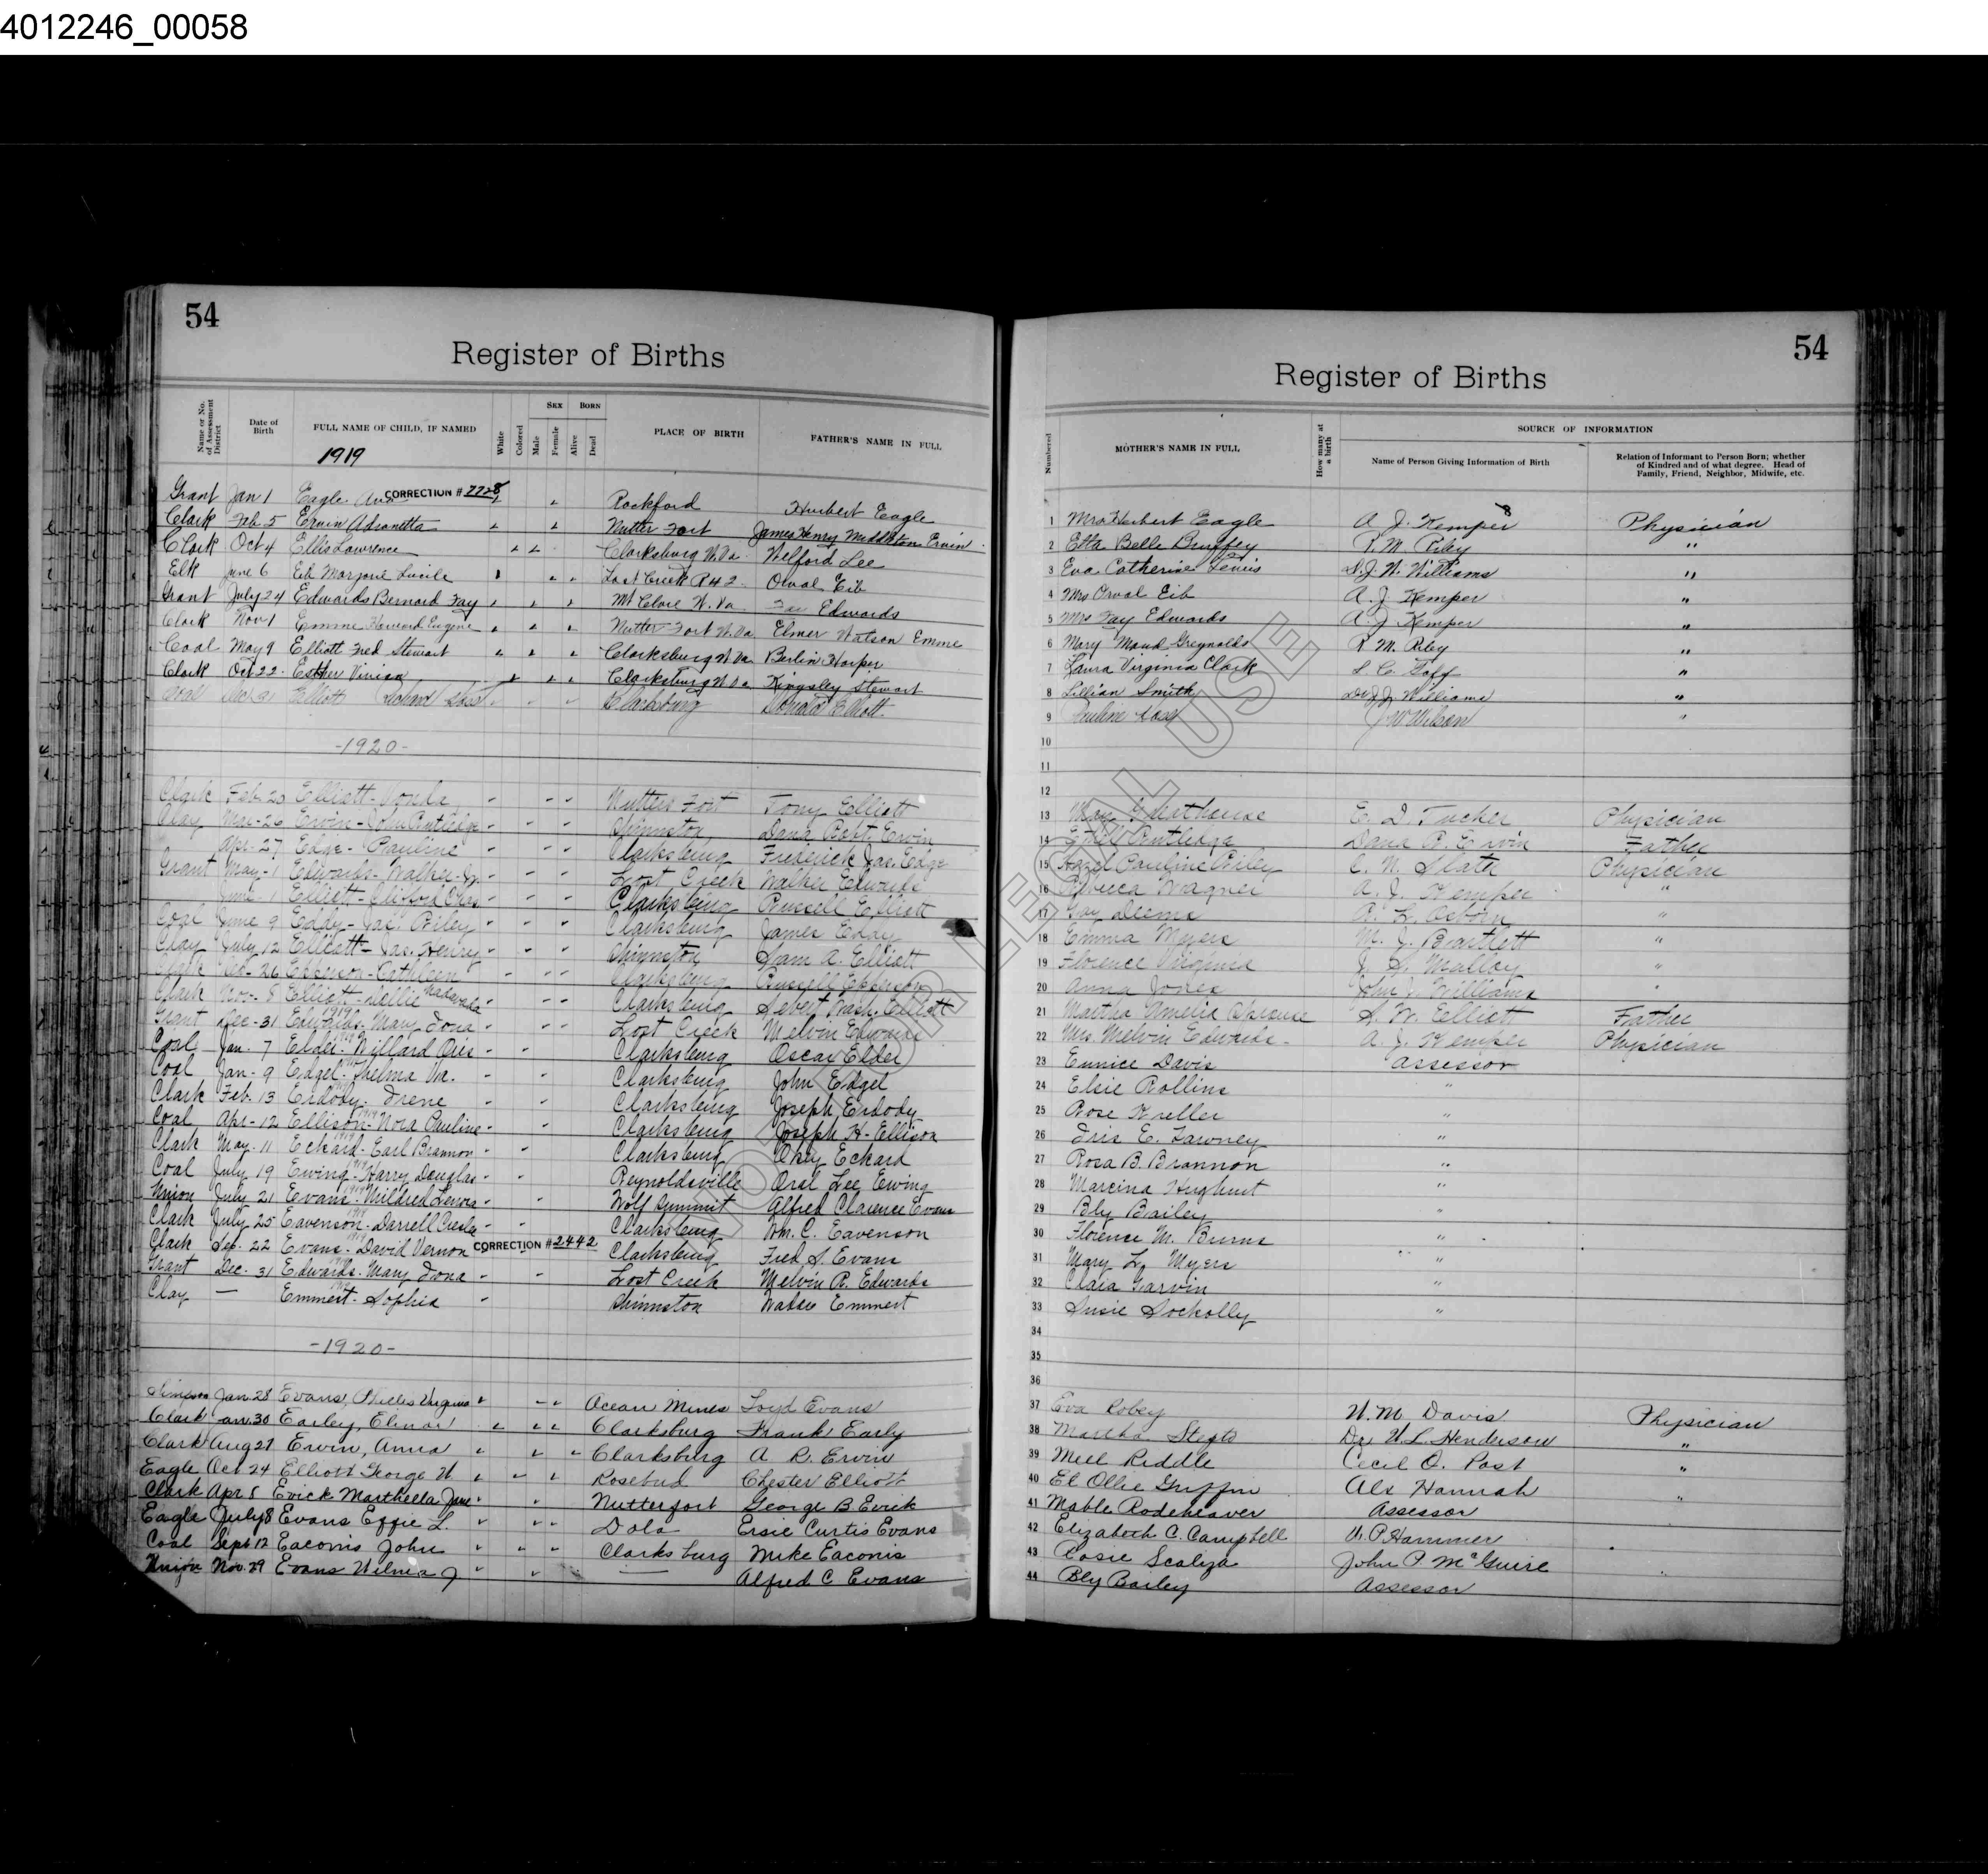 4012246_00058
54
Register of Births
Name or No. of Assessment District
Date of Birth
FULL NAME OF CHILD, IF NAMED
White
Colored
SEX
Male
Female
BORN
Alive
Dead
PLACE OF BIRTH
FATHER'S NAME IN FULL
1919
Grant Jan 1 Eagle CORRECTION # 7728 Rockford Hurbert Eagle
Clark Feb. 5 Ervin Adronetta Nutter Fort James Henry Middleton Ervin
Clark Oct 4 Ellis Lawrence Clarksburg W.Va. Wilford Lee
Elk June 6 Eib Marjorie Lucile Lost Creek R#2 Orval Eib
Grant July 24 Edwards Bernard Fay Mt Clare W.Va Fay Edwards
Clark Nov 1 Emme Howard Eugene Nutter Fort W.Va Elmer Watson Emme
Coal May 9 Elliott Fred Stewart Clarksburg W.Va Berlin Harper
Clark Oct 22 Esther Clarksburg W.Va Kingsley Stewart
Coal Elliott Clarksburg Donald Elliott
-1920-
Clark Feb. 20 Elliott - Vonda Nutters Fort Tony Elliott
Clay Mar-26 Ervin - John Rutledge Shinnston Dana Robt. Ervin
Apr-27 Edge - Pauline Clarksburg Frederick Jas. Edge
Grant May-1 Edwards - Walker - Jr. Lost Creek Walker Edwards
June-1 Elliott - Clifford Chas Clarksburg Russell Elliott
Coal June 9 Eddy - Jac. Riley Clarksburg James Eddy
Clay July 12 Elliott - Jas. Henry Shinnston Sam A. Elliott
Clark 26 Epperson - Kathleen Clarksburg Russell Epperson
Clark Nov- 8 Elliott - Dollie Clarksburg Sebert Wash. Elliott
Grant Dec-31 Edwards - Mary Iona 1919 Lost Creek Melvin Edwards
Coal Jan. 7 Elder - Willard Clarksburg Oscar Elder
Coal Jan-9 Edgel - Thelma Va. Clarksburg John Edgel
Clark Feb. 13 Erdody - Irene Clarksburg Joseph Erdody
Coal Apr-12 Ellison - Nora Pauline 1919 Clarksburg Joseph H. Ellison
Clark May. 11 Eckard - Earl Brannon 1919 Clarksburg Okey Eckard
Coal July 19 Ewing - Harry Douglas 1919 Reynoldsville Oral Lee Ewing
Union July 21 Evans - Mildred Lenora 1919 Wolf Summit Alfred Clarence Evans
Clark July 25 Eavenson - Darrell 1919 Clarksburg Wm. C. Eavenson
Clark Sep. 22 Evans - David Vernon 1919 CORRECTION # 2442 Clarksburg Fred S. Evans
Grant Dec. 31 Edwards - Mary Iona 1919 Lost Creek Melvin R. Edwards
Clay — Emmert - Sophia 1919 Shinnston Emmert
-1920-
Simpson Jan 28 Evans, Phillis Virginia Ocean Mines Loyd Evans
Clark Jan. 30 Earley, Elinor Clarksburg Frank Early
Clark Aug 27 Ervin, Anna Clarksburg A R. Ervin
Eagle Oct 24 Elliott George W. Rosebud Chester Elliott
Clark Apr 5 Evick Marthella Jane Nutterfort George B Evick
Eagle July 8 Evans Effie L. Dola Ersie Curtis Evans
Coal Sept 12 Eaconis John Clarksburg Mike Eaconis
Union Nov. 29 Evans Wilma J — Alfred C Evans
54
Register of Births
Numbered
MOTHER'S NAME IN FULL
How many at a birth
SOURCE OF INFORMATION
Name of Person Giving Information of Birth
Relation of Informant to Person Born; whether of Kindred and of what degree. Head of Family, Friend, Neighbor, Midwife, etc.
1 Mrs Herbert Eagle A J. Kemper 8 Physician
2 Etta Belle Bruffey R. M. Riley "
3 Eva Catherine Lewis J. W. Williams "
4 Mrs Orval Eib A. J. Kemper "
5 Mrs Fay Edwards A. J. Kemper "
6 Mary Maud Greynolds R M. Riley "
7 Laura Virginia Clark S C. Goff "
8 Lillian Smith Dr J.J. Williams "
9 Pauline J W Wilson "
10
11
12
13 May Mathouse E. D. Tucker Physician
14 Ethel Rutledge Dana R. Ervin Father
15 Hazel Pauline Riley C. N. Slater Physician
16 Rebecca Wagner A. J. Kemper "
17 Gay Deems R. L. Osborn "
18 Emma Myers M. J. Bartlett "
19 Florence J. S. Malloy "
20 Anna Jones John J. Williams "
21 Martha Amelia S. W. Elliott Father
22 Mrs. Melvin Edwards - A. J. Kemper Physician
23 Eunice Davis Assessor
24 Elsie Rollins "
25 Rose Kreller "
26 Iris E. Tawney "
27 Rosa B. Brannon "
28 Marcina "
29 Bly Bailey "
30 Florence M. Burns "
31 Mary L. Myers "
32 Clara Garvin "
33 Susie Sockolly "
34
35
36
37 Eva Robey W. M. Davis Physician
38 Martha Dr. W. L. Henderson "
39 Meel Riddle Cecil O. Post "
40 El Ollie Griffin Als Hannah "
41 Mable Rodeheaver Assessor
42 Elizabeth C. Campbell W. P Hammer
43 Rosie Scaliza John P McGuire
44 Bly Bailey Assessor
NOT FOR LEGAL USE